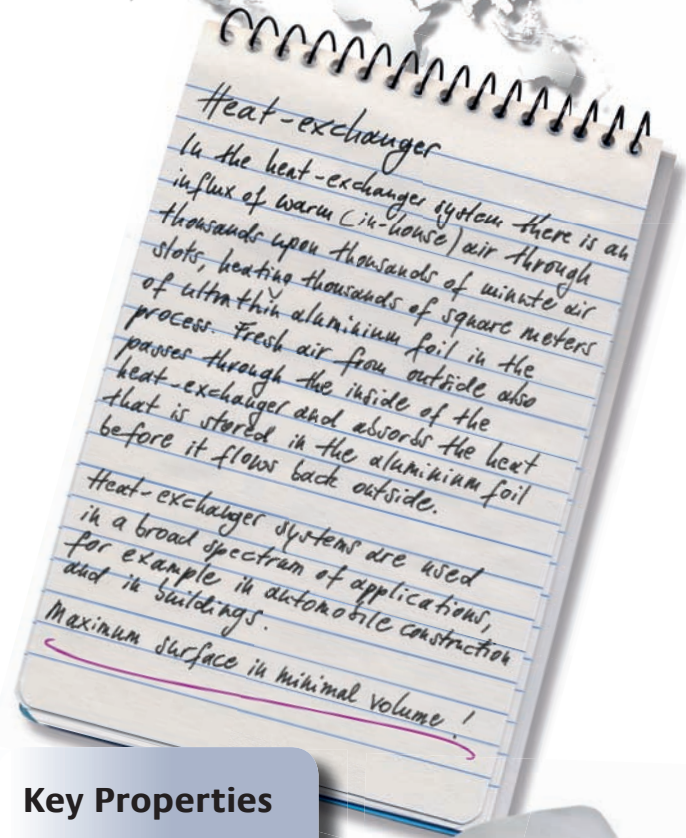 Heat-exchanger
In the heat-exchanger system there is an
influx of warm (in-house) air through
thousands upon thousands of minute air
slots, heating thousands of square meters
of ultrathin aluminium foil in the
process. Fresh air from outside also
passes through the inside of the
heat-exchanger and absorbs the heat
that is stored in the aluminium foil
before it flows back outside.
Heat-exchanger systems are used
in a broad spectrum of applications,
for example in automobile construction
and in buildings.
Maximum surface in minimal volume!
Key Properties